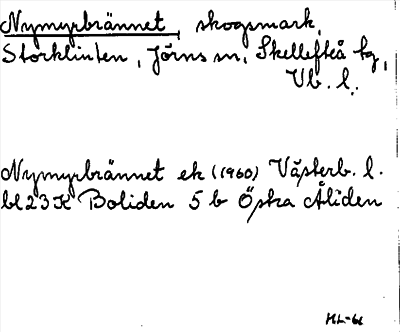 Nymyrbrännet, skogsmark,
Storklinten, Jörns sn, Skellefteå tg,
Vb. l.
Nymyrbrännet ek (1960) Västerb. l.
bl 23 K Boliden 5 b Östra Åliden
ML-66